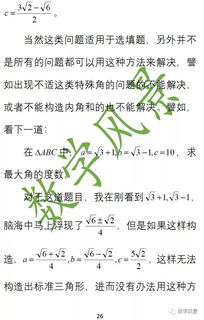 c=\frac{3\sqrt{2}-\sqrt{6}}{2}。
当然这类问题适用于选填题，另外并不
是所有的问题都可以用这种方法来解决，譬
如出现不适这类特殊角的问题的不能解决，
或者不能构造内角和的也不能解决。譬如，
看下一道：
在ΔABC中，a=√3+1,b=√3−1,c=10，求
最大角的度数。
对于这道题目，我在刚看到√3+1,√3−1，
脑海中马上浮现了\frac{\sqrt{6}±\sqrt{2}}{4}，但是如果这样构
造，a=\frac{\sqrt{6}+\sqrt{2}}{4},b=\frac{\sqrt{6}-\sqrt{2}}{4},c=\frac{5\sqrt{2}}{2}，这样无法
构造出标准三角形，进而没有办法用这种方
26
数学风景
数学风景